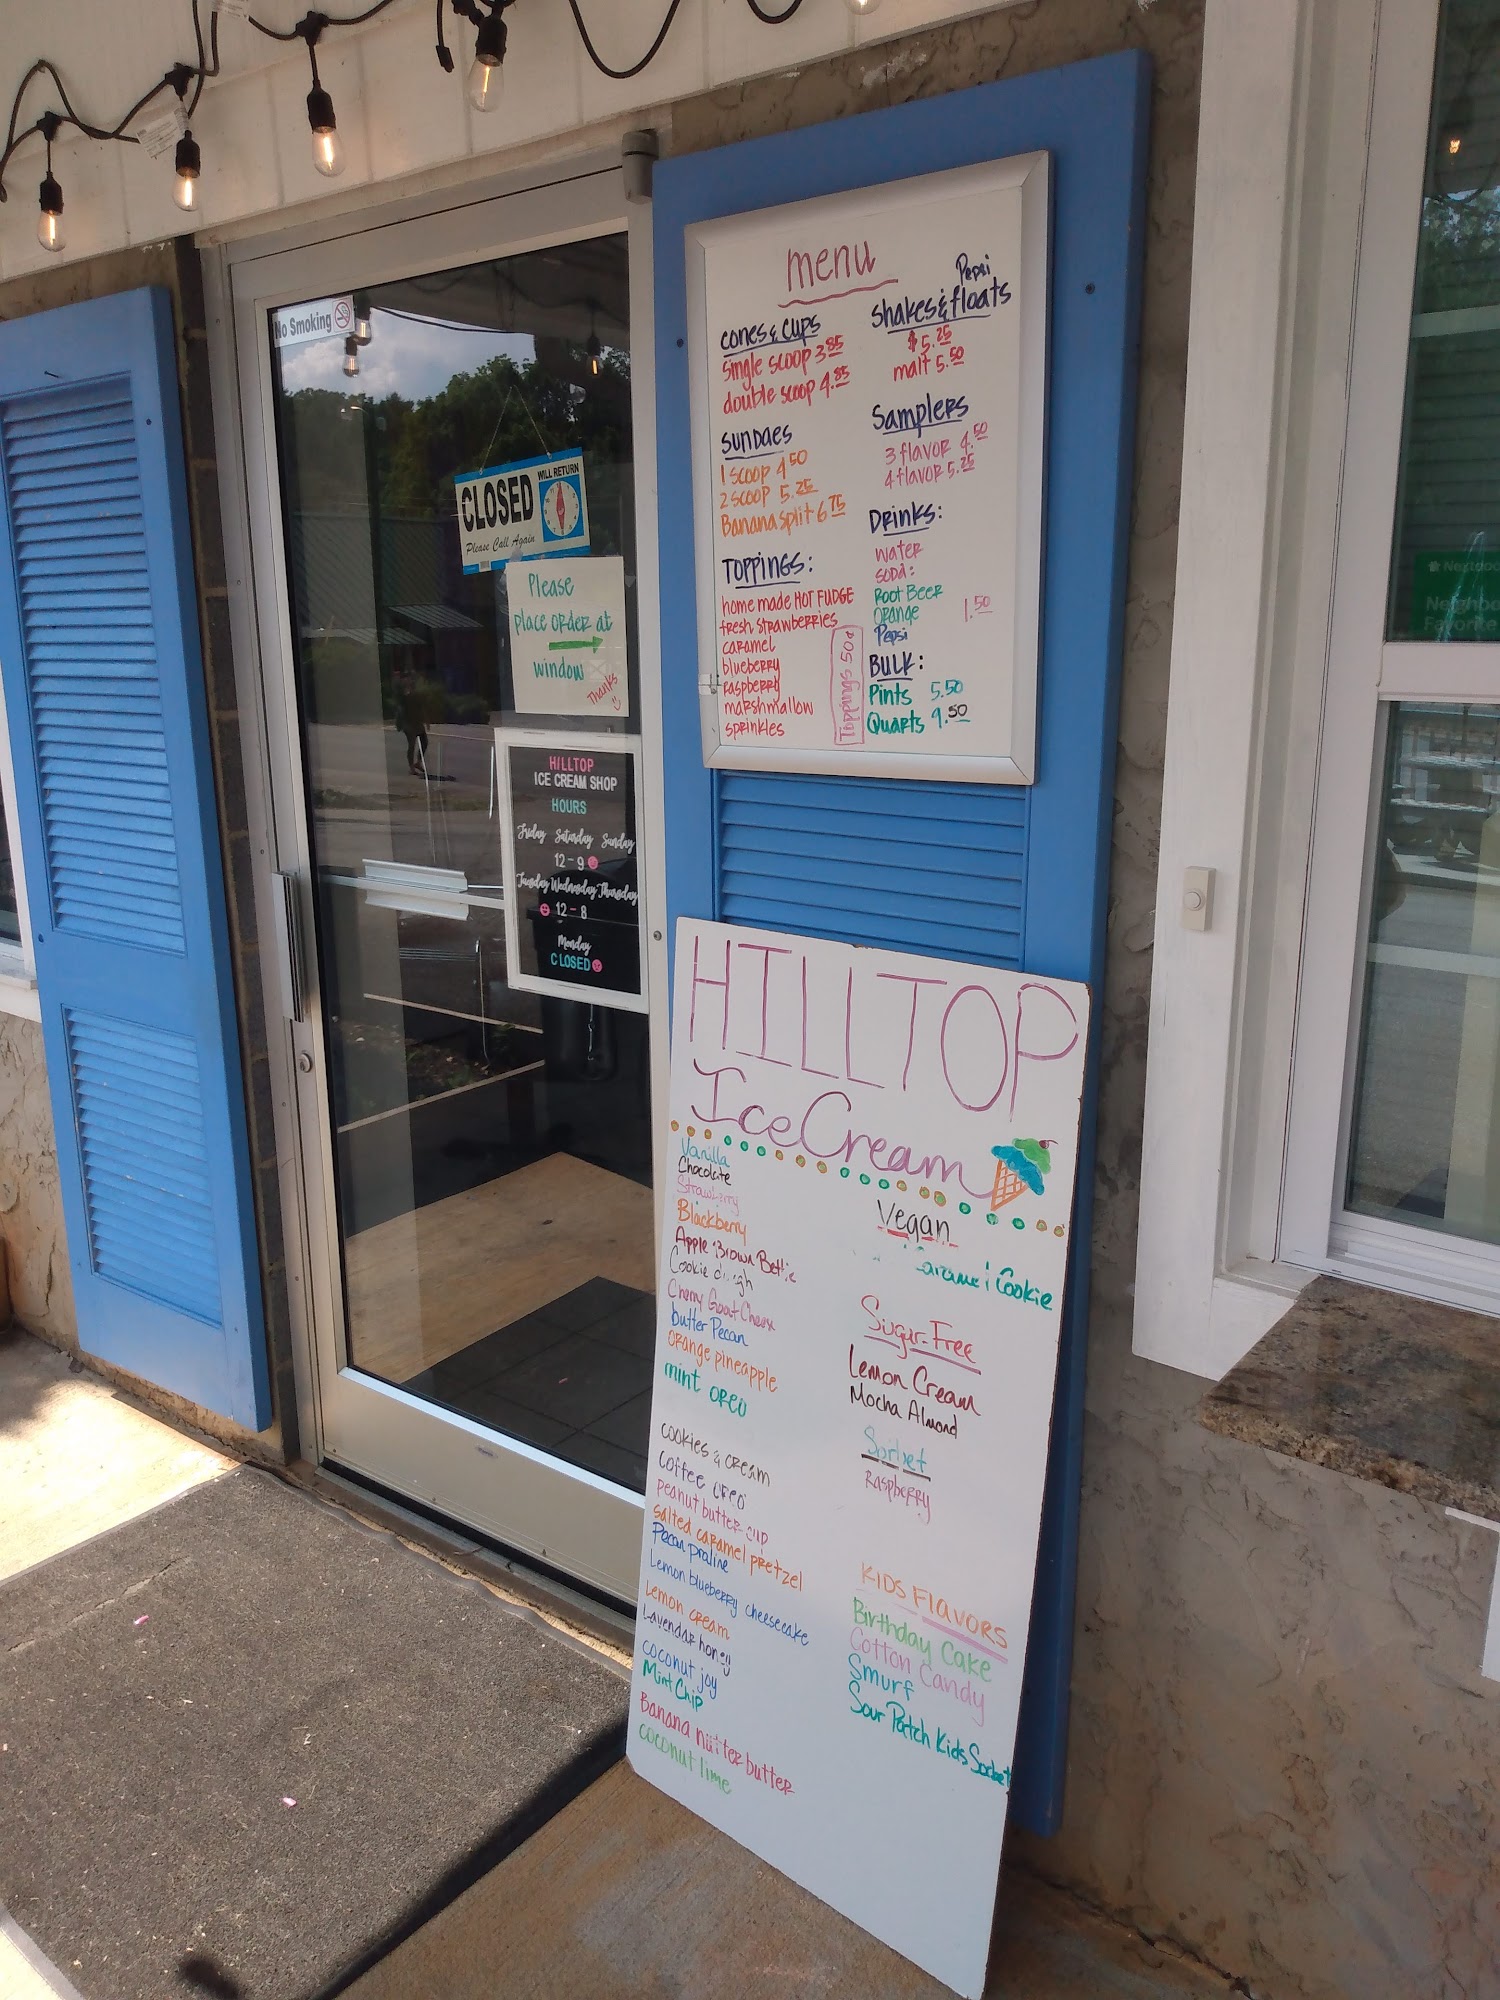 No Smoking
WILL RETURN
CLOSED
Please Call Again
Please
place order at
window
Thanks
HILLTOP
ICE CREAM SHOP
HOURS
Friday Saturday Sunday
12 - 9
Tuesday Wednesday Thursday
12 - 8
Monday
CLOSED
menu
cones & cups
single scoop 3.85
double scoop 4.85
Sundaes
1 scoop 4.50
2 scoop 5.25
Banana split 6.75
TOPPINGS:
home made HOT FUDGE
fresh strawberries
caramel
blueberry
raspberry
marshmallow
sprinkles
Toppings 50¢
Pepsi
Shakes & floats
$5.25
malt 5.50
Samplers
3 flavor 4.50
4 flavor 5.25
Drinks:
water
soda:
Root Beer
Orange 1.50
Pepsi
BULK:
Pints 5.50
Quarts 9.50
HILLTOP
Ice Cream
Vanilla
Chocolate
Strawberry
Blackberry
Apple Brown Bettie
Cookie dough
Cherry Goat Cheese
butter Pecan
orange pineapple
mint oreo
cookies & cream
coffee oreo
peanut butter cup
salted caramel pretzel
Pecan praline
Lemon blueberry cheesecake
Lemon cream
Lavendar honey
coconut joy
Mint Chip
Banana nutter butter
coconut lime
Vegan
Caramel Cookie
Sugar-Free
Lemon Cream
Mocha Almond
Sorbet
Raspberry
KIDS FLAVORS
Birthday Cake
Cotton Candy
Smurf
Sour Patch Kids Sorbet
Nextdoor
Favorite